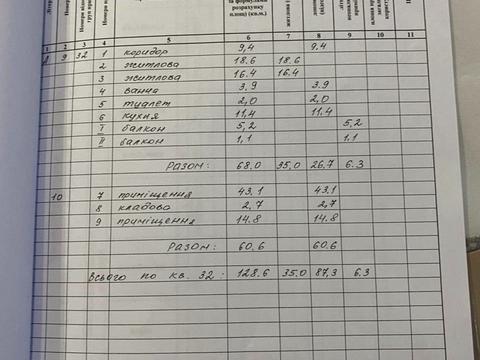 та формулами
розрахунку
площі (кв.м.)
1 2 3 4 5 6 7 8 9 10 11
А 9 32 1 коридор 9,4 9.4
2 житлова 18.6 18.6
3 житлова 16.4 16.4
4 ванна 3.9 3.9
5 туалет 2,0 2.0
6 кухня 11,4 11.4
I балкон 5,2 5,2
II балкон 1,1 1.1
Разом: 68.0 35,0 26.7 6.3
10 7 приміщення 43.1 43.1
8 кладова 2,7 2,7
9 приміщення 14.8 14.8
Разом: 60.6 60.6
Всього по кв. 32: 128.6 35,0 87,3 6.3